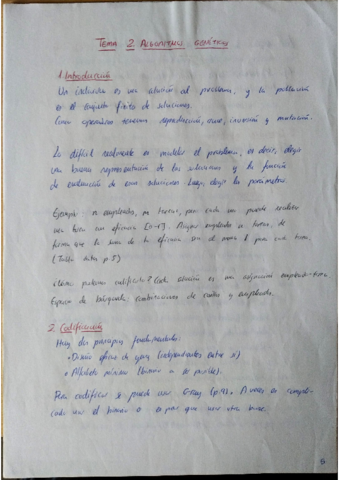 TEMA 2 ALGORITMOS GENÉTICOS
1. Introducción
Un individuo es una solución al problema, y la población
es el conjunto finito de soluciones.
Como operadores tenemos reproducción, cruce, inversión y mutación.
Lo difícil realmente es modelar el problema, es decir, elegir
una buena representación de las soluciones y la función
de evaluación de esas soluciones. Luego, elegir los parámetros
Ejemplo: n empleados, m tareas, para cada uno puede realizar
una tarea con eficiencia [0-1]. Asignar empleados a tareas, de
forma que la suma de la eficiencia sea el para cada tarea.
(Tabla p. 5)
¿Cómo podemos codificarlo? Cada solución es una asignación empleado-tarea
Espacio de búsqueda: combinaciones de tareas y empleados.
2. Codificación
Hay dos principios fundamentales:
• Diseño de genes (independientes entre sí)
• Alfabeto mínimo (binario si es posible).
Para codificar se puede usar Gray (p. A veces es
usar el binario o es peor que usar otra base.
6